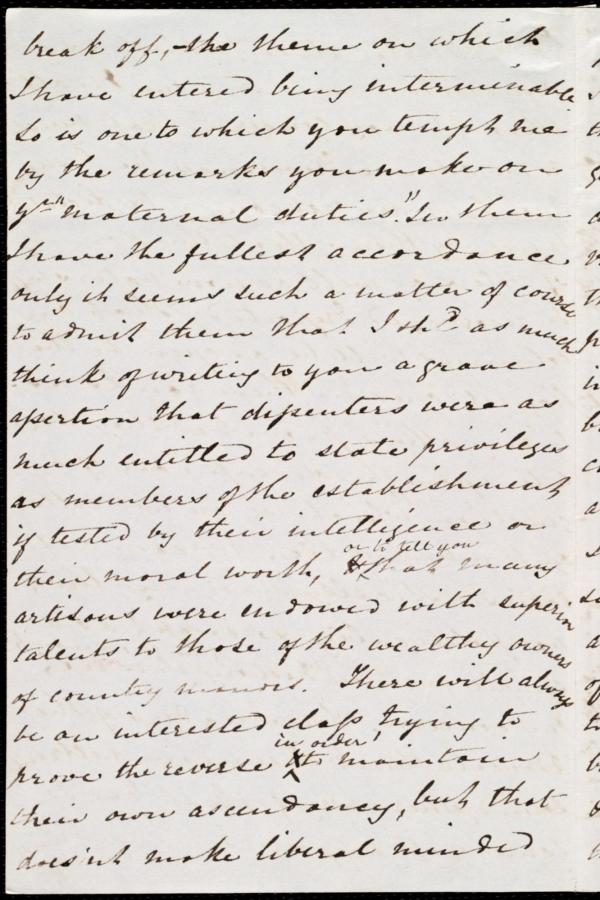 break off,-the theme on which
I have entered being interminable
So is one to which you tempt me
by the remarks you make on
yr "maternal duties". In them
I have the fullest accordance
only it seems such a matter of course
to admit them that I shd as much
think of writing to you a grave
assertion that dissenters were as
much entitled to state privileges
as members of the establishment
if tested by their intelligence or
or to tell you
their moral worth, that many
artisans were endowed with superior
talents to those of the wealthy owners
of country manors. There will always
be an interested class trying to
in order
prove the reverse to maintain
their own ascendancy, but that
doesn't make liberal minded